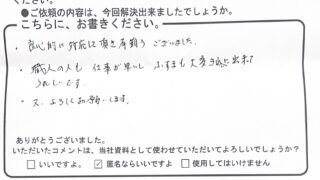 ください。
●ご依頼の内容は、今回解決出来ましたでしょうか。
こちらに、お書きください。
・良心的に対応して頂き有難うございました。
・職人の人も 仕事が早いし ふすまも大変きれいに出来て
うれしいです。
・又、よろしくお願いします。
ありがとうございました。
いただいたコメントは、当社資料として使わせていただいてよろしいでしょうか？
□いいですよ。 ☑匿名ならいいですよ □使用してはいけません